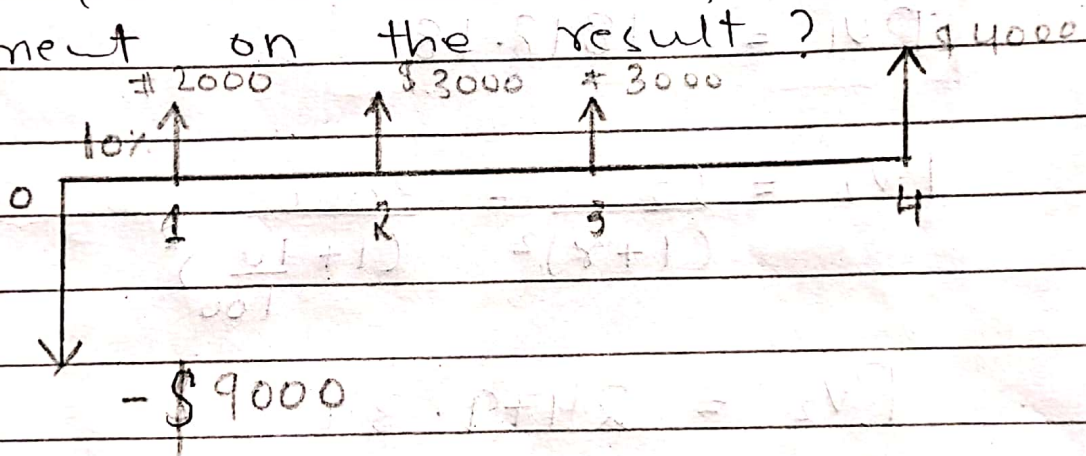 ment on the result ?
$ 2000 $ 3000 $ 3000 $ 4000
10%
0
1 2 3 4
- $ 9000